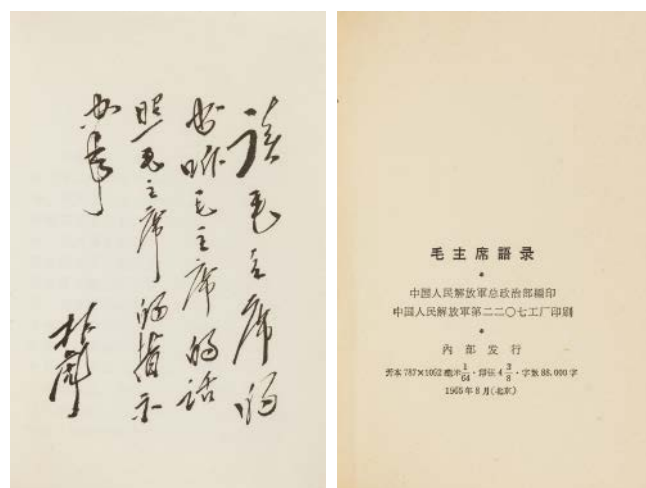 读毛主席的
书听毛主席的话
照毛主席的指示
办事
林彪
毛主席語录
中国人民解放軍总政治部編印
中国人民解放軍第二二〇七工厂印刷
內部发行
开本 787×1092 毫米 1/64 · 印张 4 3/8 · 字数 88,000 字
1965年8月(北京)